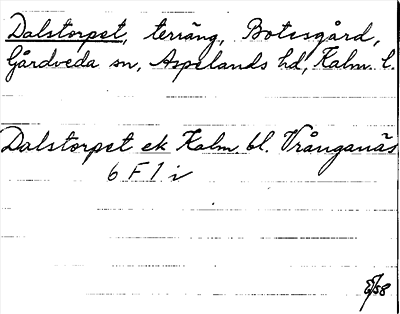 Dalstorpet, terräng, Botesgård,
Gårdveda sn, Aspelands hd, Kalm. l.
Dalstorpet ek Kalm. bl. Vrånganäs
6 F 1 i